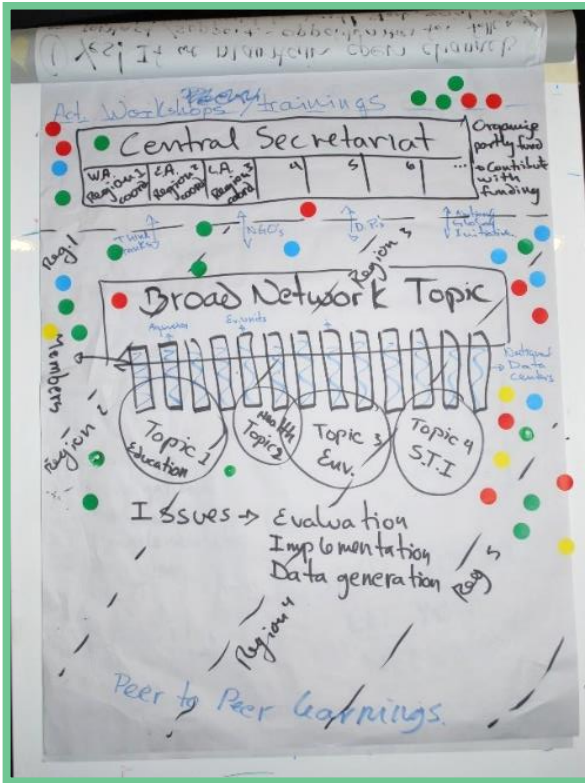 ① Yes! If we maintain open channels
Act. Workshops / trainings
Central Secretariat
W.A. Region 1 coord
E.A. Region 2 coord
L.A. Region 3 coord
4
5
6
...
Organise
partly fund
→ Contribute
with
funding
Reg 1
Think
tanks
NGO's
D.P.s
Region 3
Broad Network Topic
Agencies
Ev. units
Members
National
Data
Centers
Region 2
Topic 1
Education
Health
Topic 2
Topic 3
Env.
Topic 4
S.T.I
Issues → Evaluation
Implementation
Data generation
Reg 5
Region 4
Peer to Peer learnings.